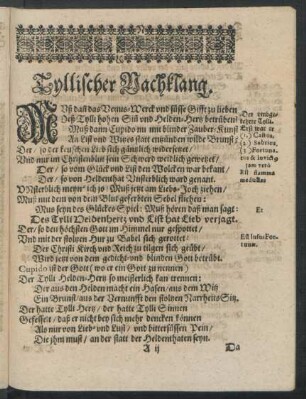 Tyllischer Nachklang.
Muß dañ das Venus-Werck und süsse Gifft zu lieben
Deß Tylli hohen Siñ und Helden-Hertz betrüben?
Muß dann Cupido nu mit blinder Zauber-Kunst
An List und Witz statt entzünden wilde Brunst?
Der / so der keuschen Lieb sich gäntzlich widersetzet /
Und nur im Christenblut sein Schwerd weidlich gewetzet /
Der / so vom Glück und List den Wolcken war bekant /
Der / so von Heldenthat Unsterblich ward genant.
Unsterblich meyn' ich jo / Muß jetzt am Liebs-Joch ziehen /
Muß nun dem von dem Blut geferbten Sebel fliehen:
Muß seyn des Glückes Spiel: Muß hören daß man sagt:
Des Tylli Heldenhertz und List hat Lieb verjagt.
Der / so den höchsten Gott im Himmel nur gespottet /
Und mit der stoltzen Hur zu Babel sich gerottet
Der Christi Kirch und Reich zu tilgen sich geübt /
Wird jetzt von dem gedicht- und blinden Gott betrübt.
Cupido ist der Gott (wo er ein Gott zu nennen)
Der Tylli Helden-Hertz so meisterlich kan trennen:
Der aus den Helden macht ein Hasen / aus dem Witz
Ein Brunst / aus der Vernunfft den stoltzen Narrheits Sitz.
Der hatte Tylli Hertz / der hatte Tylli Sinnen
Gefesselt / daß er nicht bey sich mehr dencken können
Als nur von Lieb- und Lust / und bittersüssen Pein /
Die jhm must / an der statt der Heldenthaten seyn.
A ij
Da